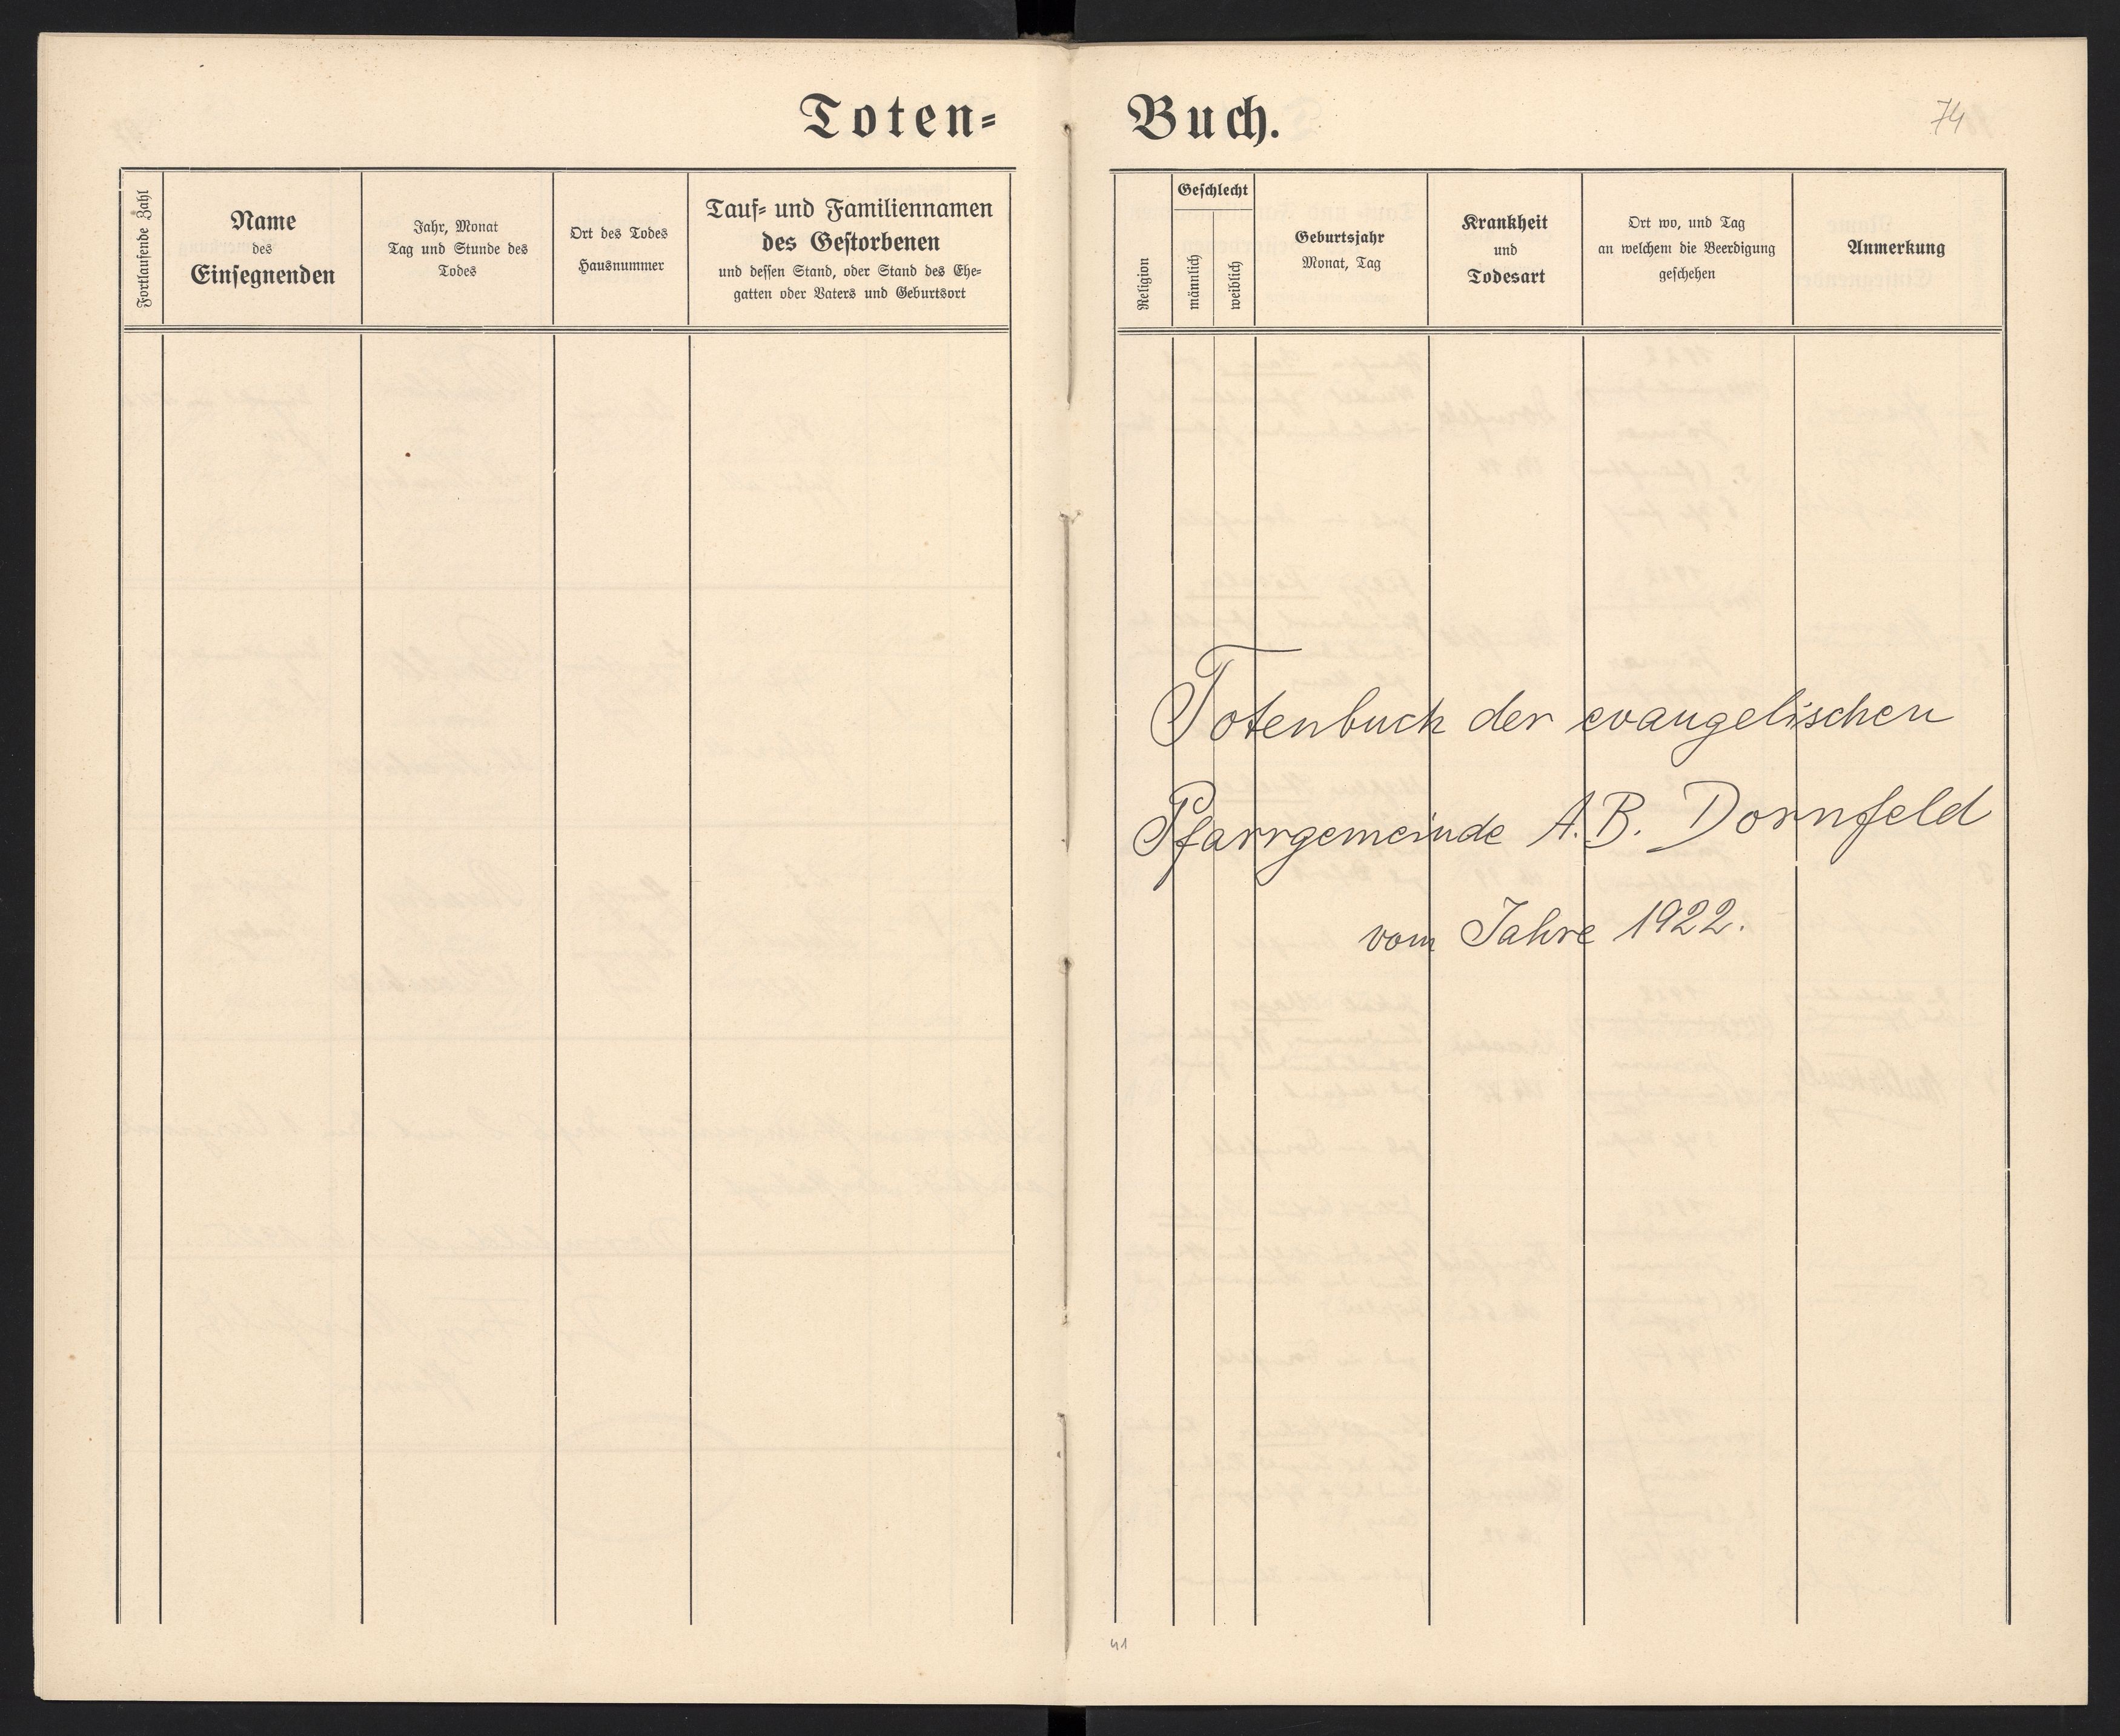 Toten-
Fortlaufende Zahl
Name
des
Einsegnenden
Jahr, Monat
Tag und Stunde des
Todes
Ort des Todes
Hausnummer
Tauf- und Familiennamen
des Gestorbenen
und dessen Stand, oder Stand des Ehe-
gatten oder Vaters und Geburtsort
Buch.
74
Religion
Geschlecht
männlich
weiblich
Geburtsjahr
Monat, Tag
Krankheit
und
Todesart
Ort wo, und Tag
an welchem die Beerdigung
geschehen
Anmerkung
Totenbuch der evangelischen
Pfarrgemeinde A.B. Dornfeld
vom Jahre 1922.
41